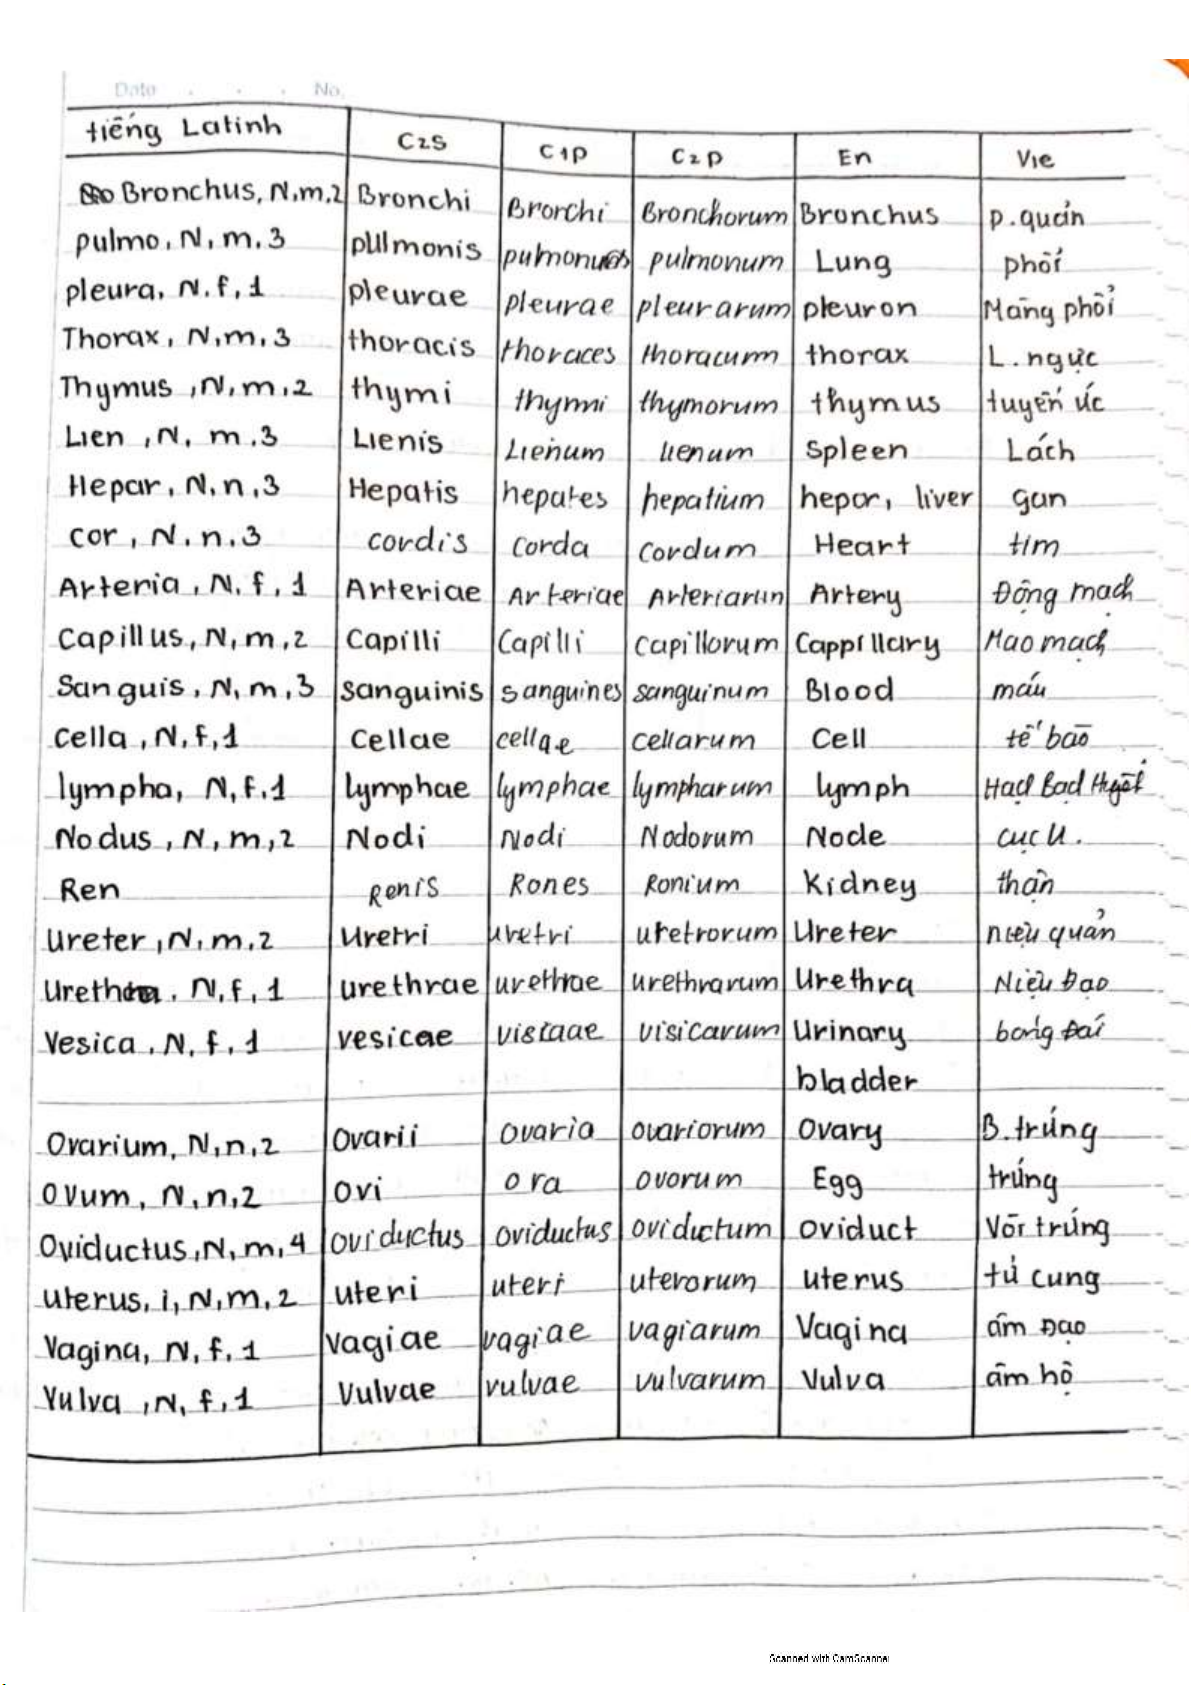 Date . . . No.
tiếng Latinh C2S C1P C2P En Vie
Bronchus, N,m,2 Bronchi Brorchi Bronchorum Bronchus p.quản
pulmo, N, m, 3 pulmonis pulmonum Lung phổi
pleura, N.f,1 pleurae pleurae pleurarum pleuron Màng phổi
Thorax, N,m,3 thoracis thoraces thoracum thorax L. ngực
Thymus, N, m,2 thymi thymi thymorum thymus tuyến ức
Lien, N, m,3 Lienis Lienum lienum Spleen Lách
Hepar, N,n,3 Hepatis hepates hepatium hepar, liver gan
cor, N, n.3 cordis corda cordum Heart tim
Arteria, N, f, 1 Arteriae Arteriae Arteriarun Artery Động mạch
Capillus, N, m,2 Capilli Capilli capillorum Cappillary Mao mạch
Sanguis, N, m,3 sanguinis sanguines sanguinum Blood máu
cella, N,f,1 cellae cellae cellarum Cell tế bào
lympha, N,f.1 lymphae lymphae lympharum lymph Hạch Bạch Huyết
Nodus, N, m,2 Nodi Nodi Nodorum Node cục u.
Ren Renis Rones Ronium Kidney thận
Ureter, N, m,2 Uretri uretri uretrorum Ureter niệu quản
Urethra. N,f,1 urethrae urethrae urethrarum Urethra Niệu Đạo
Vesica, N, f, 1 vesicae visicarum Urinary bóng Đái
bladder
Ovarium, N,n,2 Ovarii ovaria ovariorum Ovary B.trứng
Ovum, N,n,2 Ovi ora ovorum Egg trứng
Oviductus,N, m,4 oviductus oviductus oviductum oviduct Vòi trứng
uterus, i, N,m,2 uteri uteri uterorum uterus tử cung
Vagina, N, f, 1 vagiae vagiae vagiarum Vagina âm Đạo
Vulva, N, f,1 Vulvae vulvae vulvarum Vulva âm hộ
Scanned with CamScanner